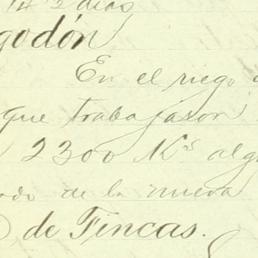 14 2 dias
godón
En el riego
que trabajaron
2300 Ks alg
ado de la nueva
de Fincas.